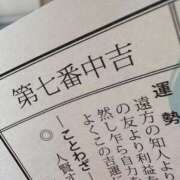 第七番中吉
運勢
遠方の知人より
の友より利益
然し乍ら自力を
よくこの吉運
ことわざ
人賢